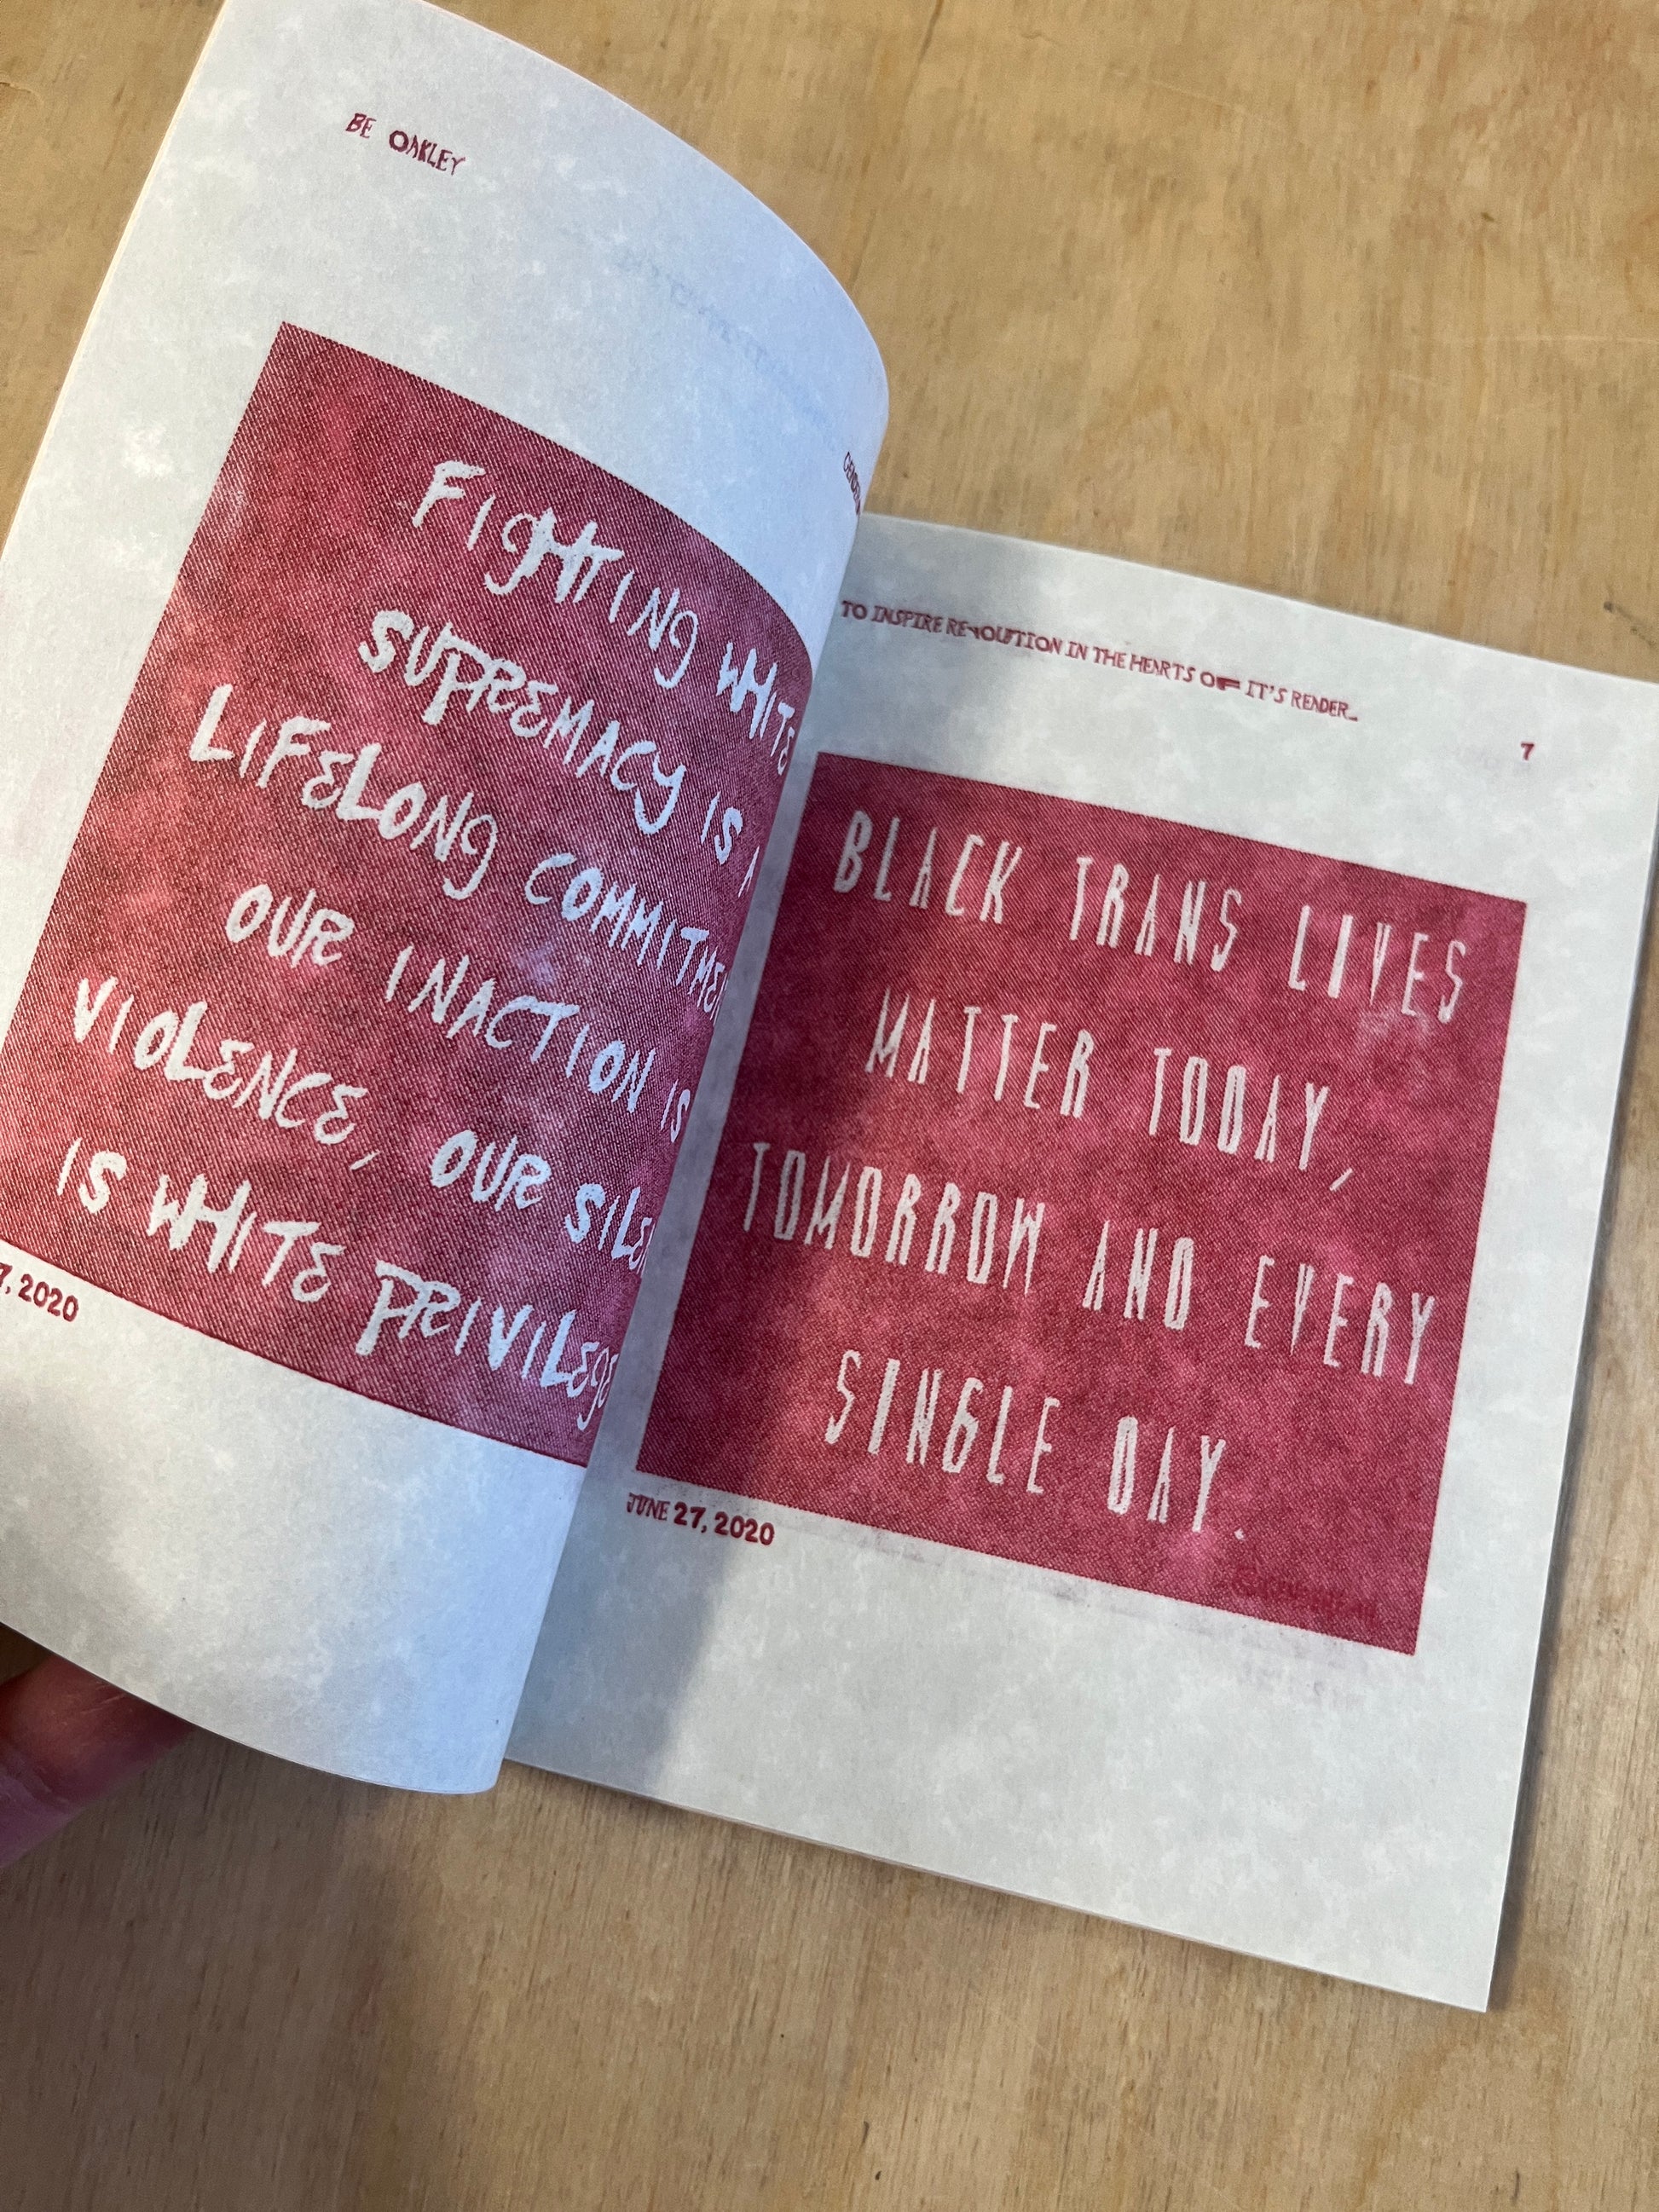 BE OAKLEY
FIGHTING WHITE
SUPREMACY IS A
LIFELONG COMMITME
OUR INACTION IS
VIOLENCE, OUR SILE
IS WHITE PRIVILEGE
7, 2020
TO INSPIRE REVOLUTION IN THE HEARTS OF IT'S READER_
7
BLACK TRANS LIVES
MATTER TODAY,
TOMORROW AND EVERY
SINGLE DAY.
JUNE 27, 2020